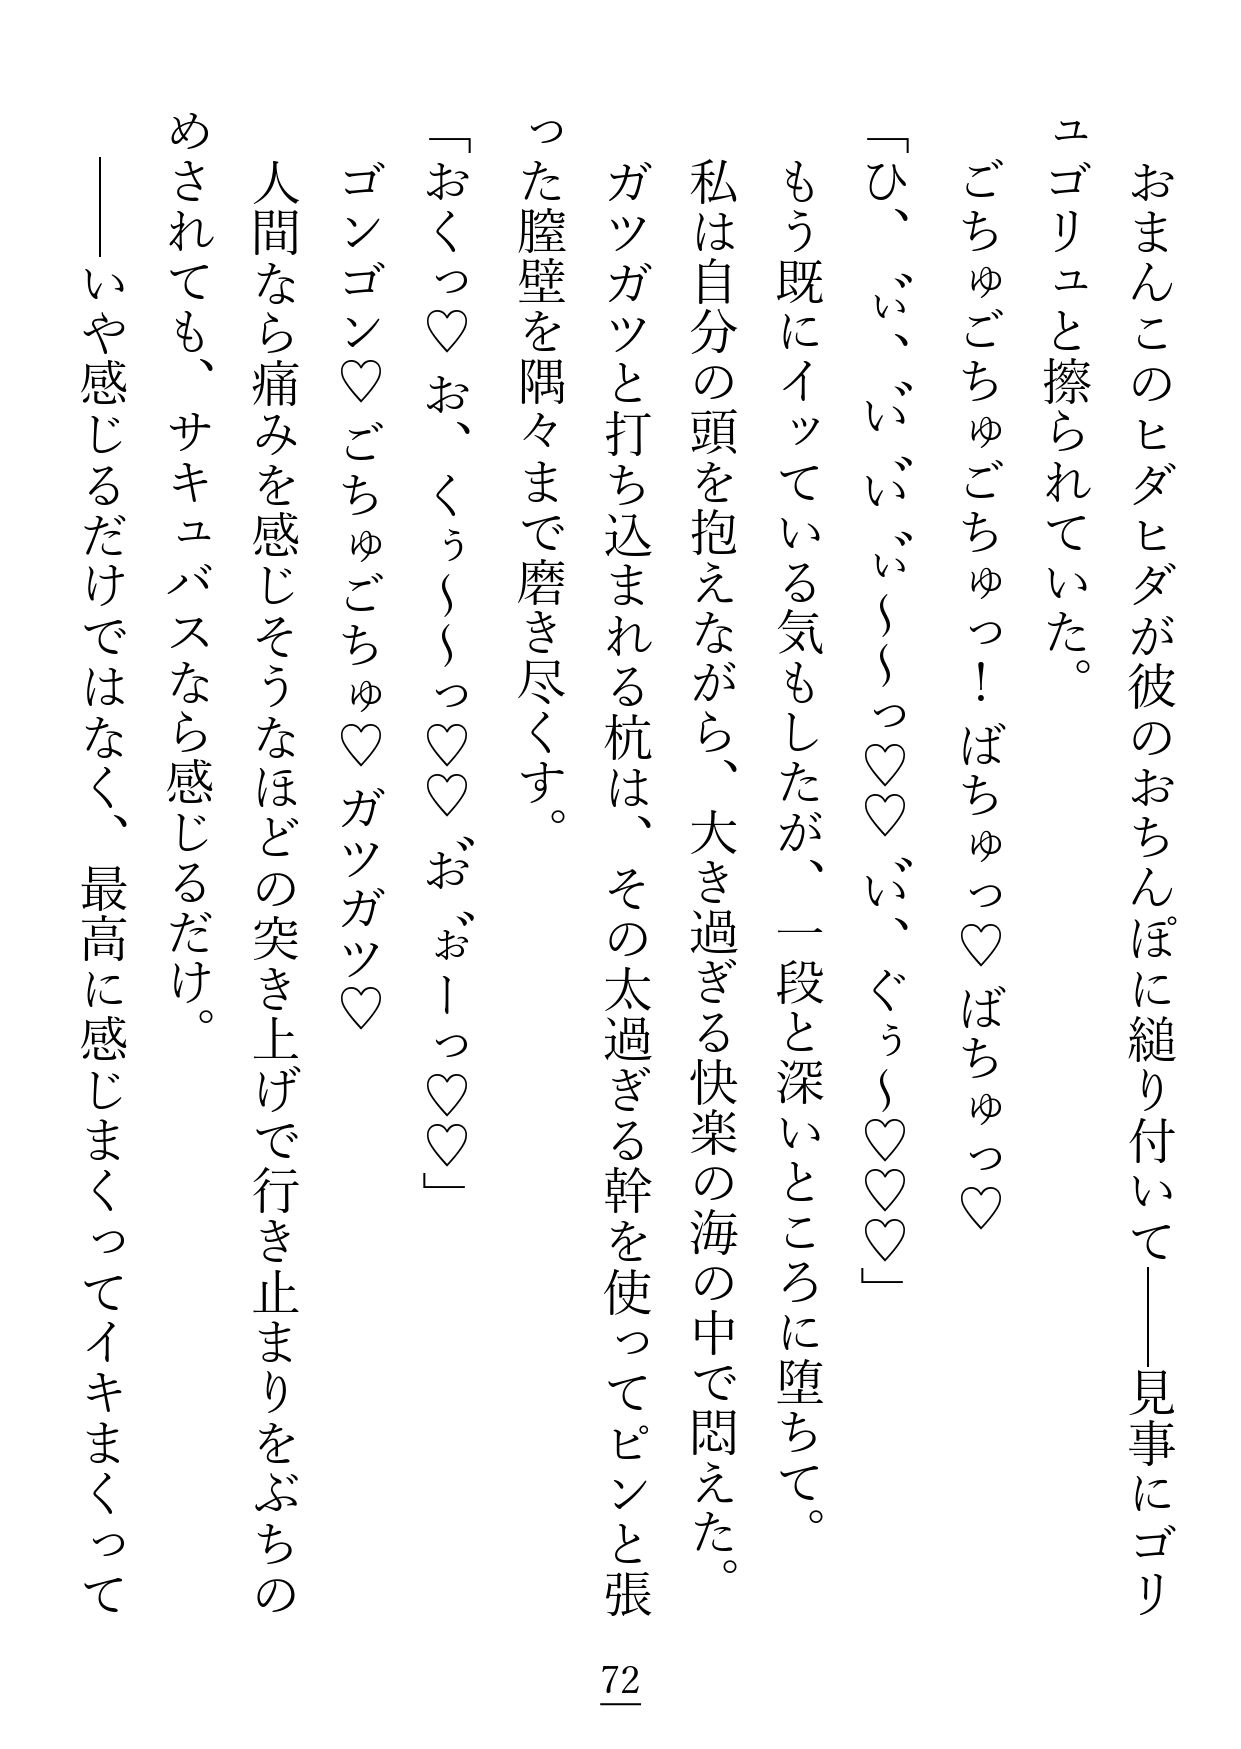 おまんこのヒダヒダが彼のおちんぽに縋り付いて――見事にゴリ
ュゴリュと擦られていた。
　ごちゅごちゅごちゅっ！ばちゅっ♡ばちゅっ♡
「ひ、ぃ゛、い゛い゛ぃ゛～～っ♡♡い゛、ぐぅ～♡♡♡」
　もう既にイッている気もしたが、一段と深いところに堕ちて。
　私は自分の頭を抱えながら、大き過ぎる快楽の海の中で悶えた。
　ガツガツと打ち込まれる杭は、その太過ぎる幹を使ってピンと張
った膣壁を隅々まで磨き尽くす。
「おくっ♡お、くぅ～～っ♡♡お゛ぉ゛ーっ♡♡」
　ゴンゴン♡ごちゅごちゅ♡ガツガツ♡
　人間なら痛みを感じそうなほどの突き上げで行き止まりをぶちの
めされても、サキュバスなら感じるだけ。
　――いや感じるだけではなく、最高に感じまくってイキまくって
72